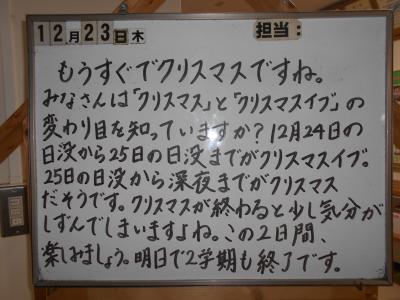 12月23日木 担当:
もうすぐでクリスマスですね。
みなさんは「クリスマス」と「クリスマスイブ」の
変わり目を知っていますか?12月24日の
日没から25日の日没までがクリスマスイブ。
25日の日没から深夜までがクリスマス
だそうです。クリスマスが終わると少し気分が
しずんでしまいますよね。この2日間、
楽しみましょう。明日で2学期も終了です。